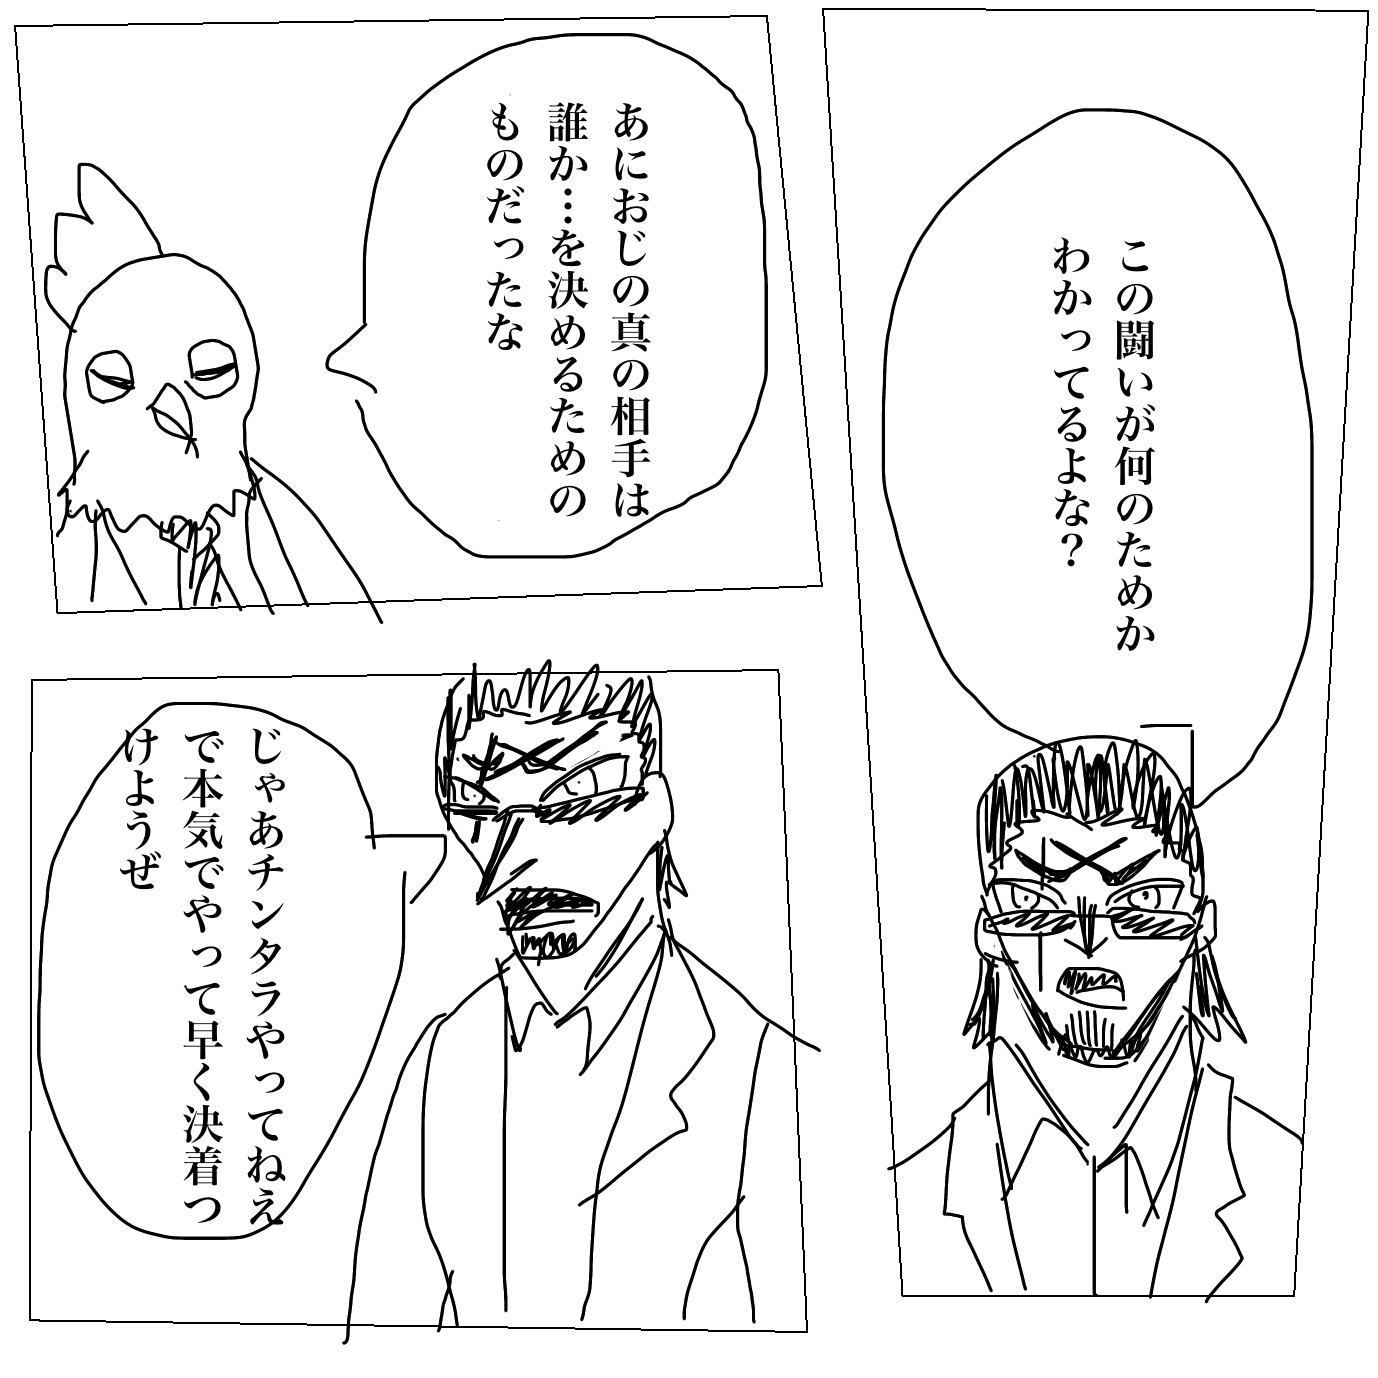 この闘いが何のためか
わかってるよな?
あにおじの真の相手は
誰か…を決めるための
ものだったな
じゃあチンタラやってねえ
で本気でやって早く決着つ
けようぜ